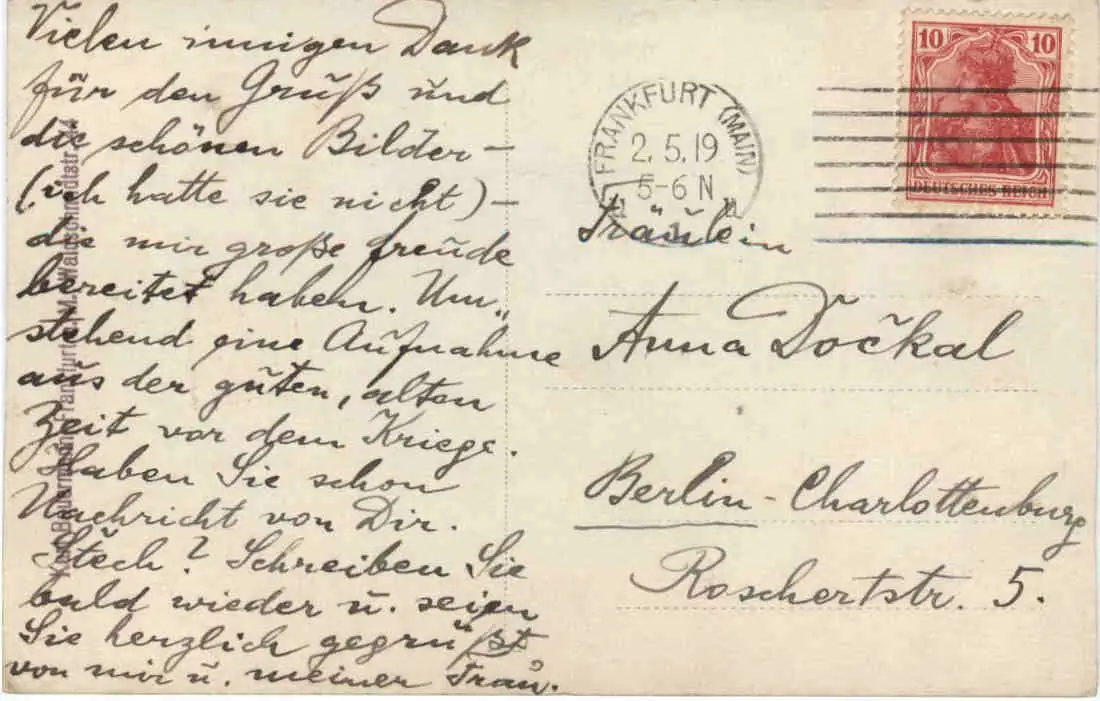 Vielen innigen Dank
für den Gruß und
die schönen Bilder –
(ich hatte sie nicht) –
die mir große Freude
bereitet haben. Um„
stehend eine Aufnahme
aus der guten, alten
Zeit vor dem Kriege.
Haben Sie schon
Nachricht von Dir.
Stech? Schreiben Sie
bald wieder u. seien
Sie herzlich gegrüßt
von mir u. meiner Frau.
FRANKFURT (MAIN)
2.5.19
5-6 N
10 10
DEUTSCHES REICH
Fräulein
Anna Dočkal
Berlin - Charlottenburg
Roschertstr. 5.
Frankfurt a. M.